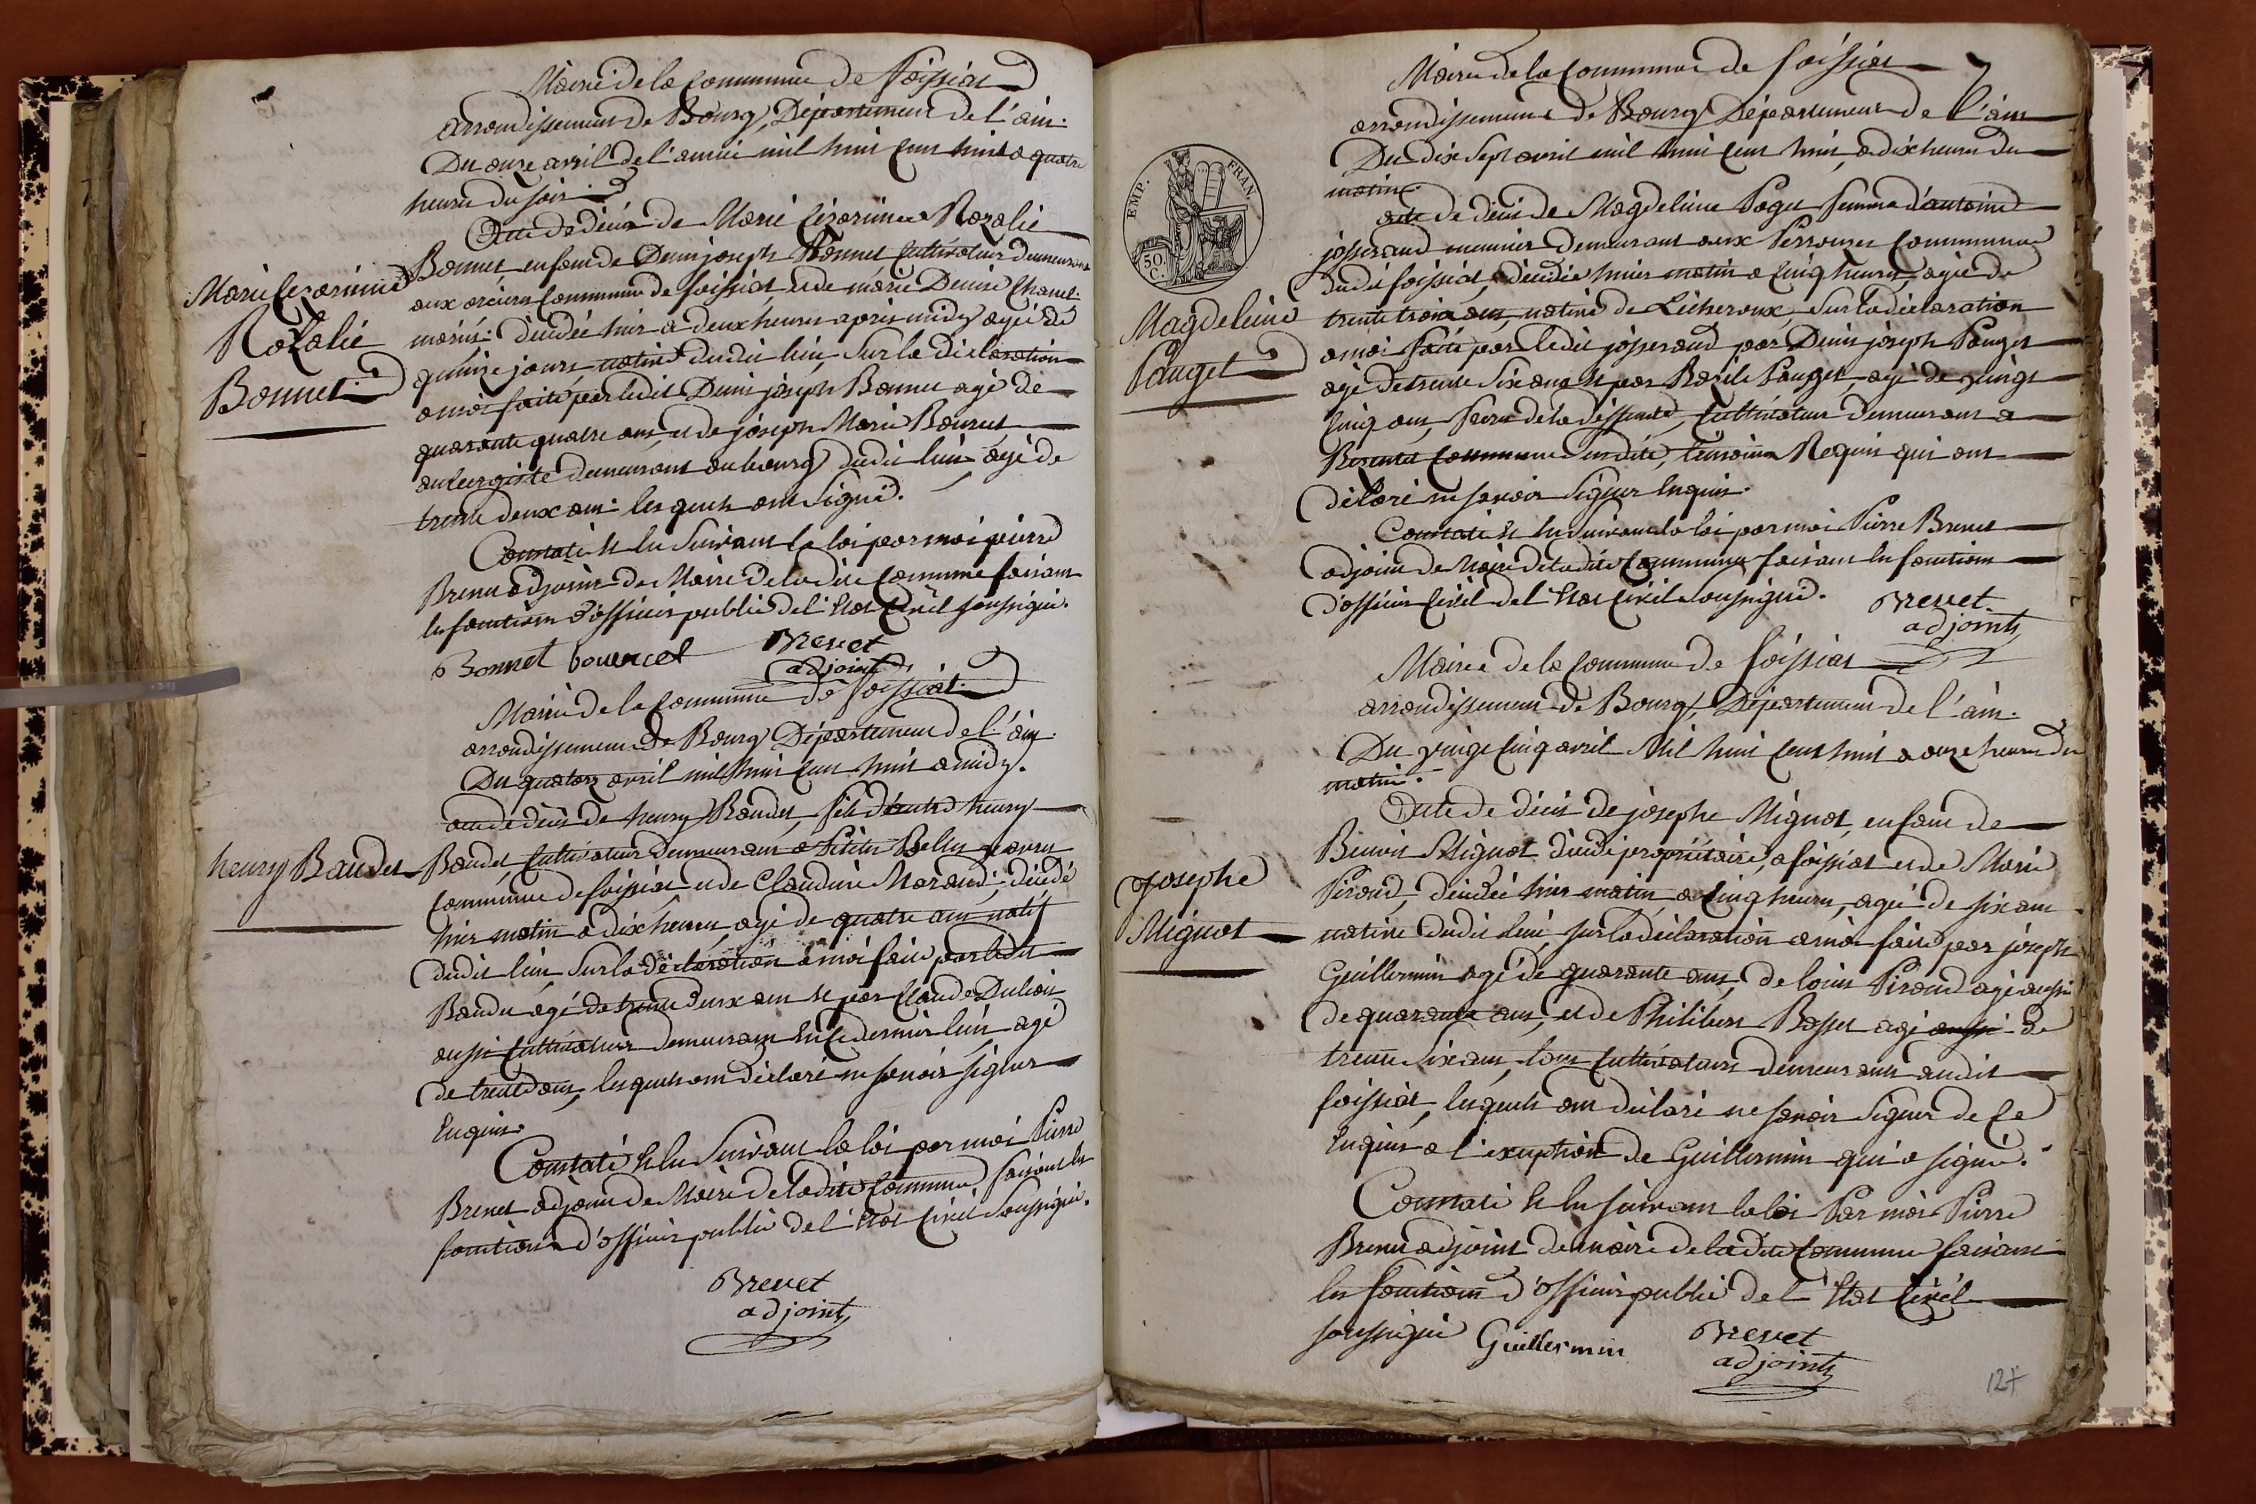 Mairie de la Commune de foissiat
arrondissement de Bourg, Département de l'ain.
Du onze avril de l'année mil huit cent huit a quatre
heures du soir.
Acte de décès de Marie Cézarinne Rozalie
Bonnet enfant de Denis joseph Bonnet Cultivateur demeurant
aux Commune de foissiat et de marie Denise Chanel
mariés: décédée hier a deux heures après midy agée de
quinze jours, native dudit lieu, Sur la déclaration
a moi faite par ledit Denis joseph Bonnet agé de
quarante quatre ans, et de joseph Marie
aubergiste demeurant au bourg dudit lieu, agé de
trente deux ans: lesquels ont Signé.
Constaté et lu Suivant la loi par moi pierre
Brevet adjoint de Maire de ladite Commune faisant
les fonctions d'officier public de l'Etat Civil soussigné.
Bonnet Brevet
adjoint
Marie Cezarinne
Rozalie
Bonnet.
Mairie de la Commune de foissiat.
arrondissement de Bourg Département de l'ain.
Du quatorze avril mil huit cent huit a midy.
acte de décès de henry Baudet, fils d'autre henry
Baudet, Cultivateur demeurant a Petites
Commune de foissiat et de Claudine Morand; décédé
hier matin a dix heures, agé de quatre ans natif
dudit lieu, Sur la déclaration a moi faite par ledit
Baudet agé de trente deux ans et par Claude
aussi Cultivateur demeurant en ce dernier lieu, agé
de trente ans, lesquels ont déclaré ne savoir signer
Enquis.
Constaté et lu Suivant la loi par moi Pierre
Brevet adjoint de Maire de ladite Commune faisant les
fonctions d'officier public de l'Etat Civil Soussigné.
Brevet
adjoint
henry Baudet
Mairie de la Commune de foissiat
arrondissement de Bourg Département de l'ain
Du dix Sept avril mil huit cent huit, a dix heures du
matin.
acte de décès de Magdeleine Paget femme d'antoine
josserand meunier demeurant aux Commune
dudit foissiat, décédée hier matin a cinq heures, agée de
trente trois ans, native de Lécheroux, Sur la déclaration
a moi faite par ledit josserand par Denis joseph Pauget
agé de trente Six ans et par Bazile Pauget, agé de vingt
cinq ans, frères de la deffunte, Cultivateurs demeurant a
Commune Susdite, témoins Requis qui ont
déclaré ne savoir Signer Enquis.
Constaté et lu Suivant la loi par moi Pierre Brevet
adjoint de Maire de ladite Commune faisant les fonctions
d'officier Civil de l'Etat Civil Soussigné. Brevet
adjoint
EMP. FRAN.
50.
C.
Magdeleine
Pauget
Mairie de la Commune de foissiat
arrondissement de Bourg, Département de l'ain.
Du vingt Cinq avril Mil huit Cent huit a onze heures du
matin.
Acte de décès de josephe Mignot, enfant de
Benoit Mignot décédé propriétaire, a foissiat et de Marie
Piroud, décédée hier matin a Cinq heures, agée de six ans
native dudit lieu, sur la déclaration a moi faite par joseph
Guillermin agé de quarante ans, de louis Piroud agé aussi
de quarante ans, et de Philibert agé aussi de
trente Six ans, tous Cultivateurs demeurant audit
foissiat, lesquels ont déclaré ne savoir Signer de ce
Enquis a l'exception de Guillermin qui a signé.
Constaté et lu suivant la loi Par moi Pierre
Brevet adjoint de maire de ladite Commune faisant
les fonctions d'officier public de l'Etat Civil
soussigné Guillermin Brevet
adjoint
Josephe
Mignot